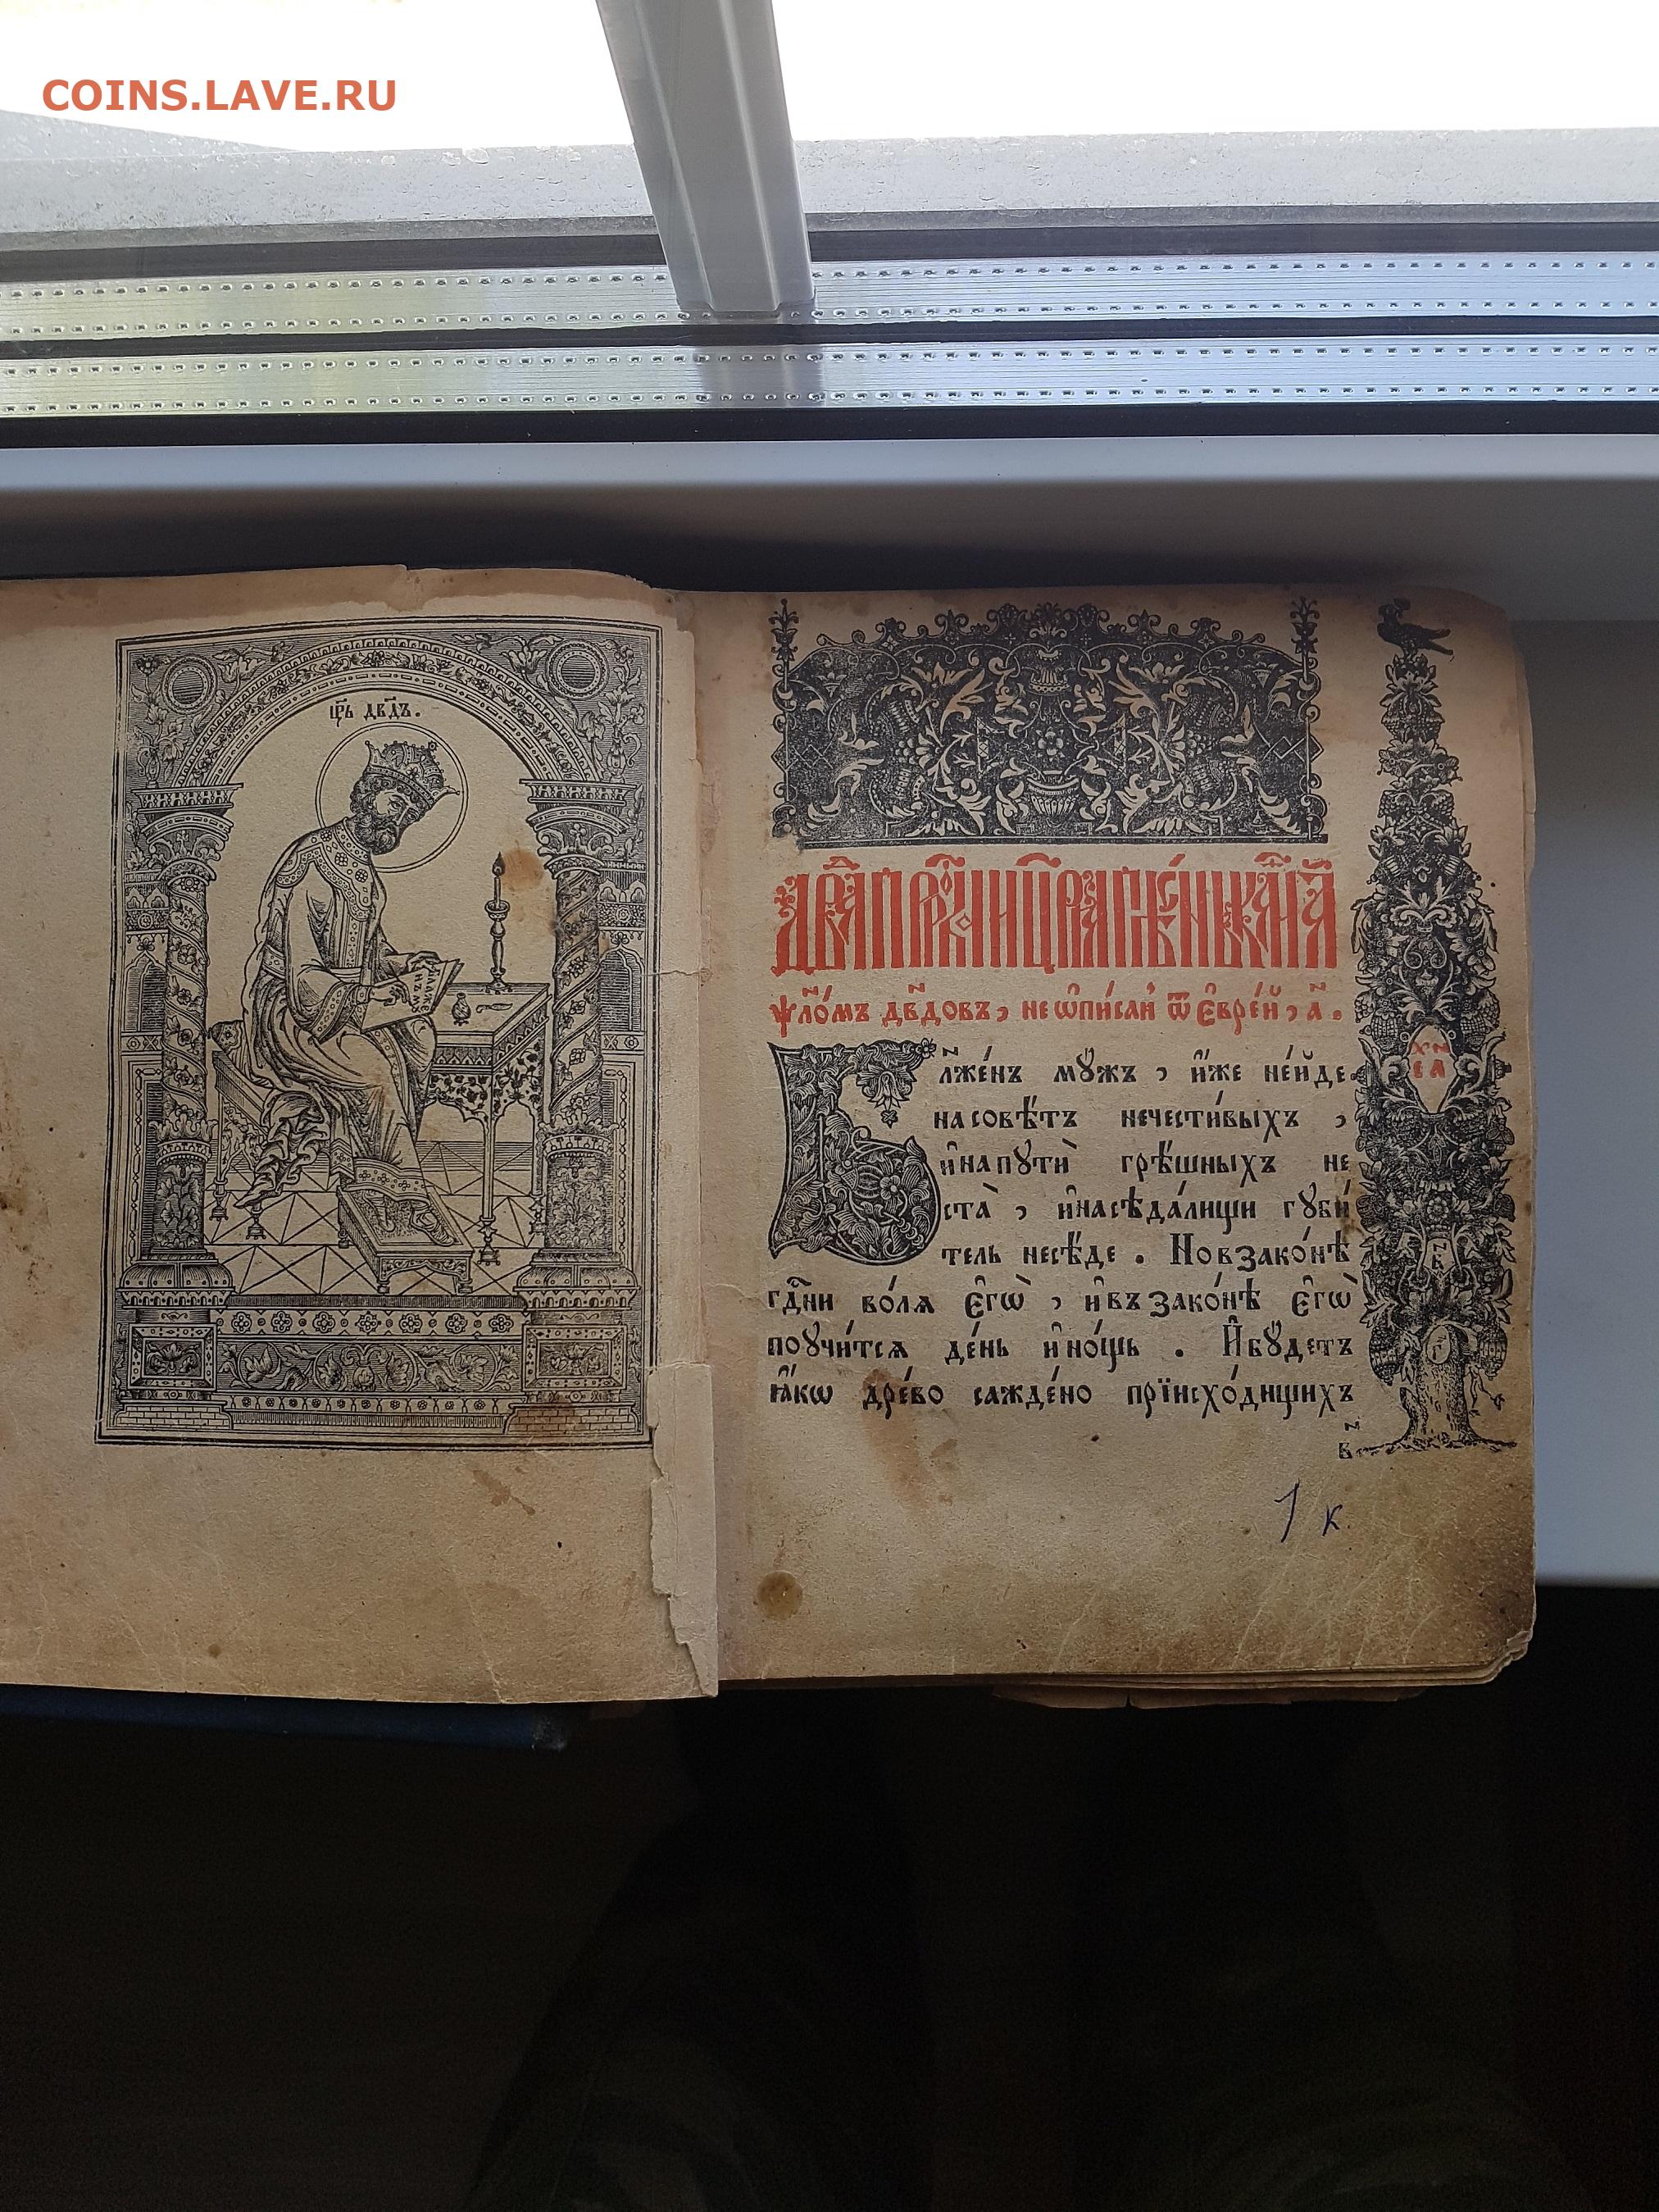 COINS.LAVE.RU
цр҃ь дв҃дъ.
дв҃да прⷪ҇рка и цр҃ѧ пѣ́снь каѳи́сма, а҃
ѱало́мъ дв҃довъ, не ѡ҆пи́санъ ѿ є҆вре́й, а҃.
Бл҃же́нъ мꙋ́жъ, и҆́же не и́де
на совѣ́тъ нечести́выхъ,
и҆ на пꙋтѝ грѣ́шныхъ не
ста̀, и҆ на сѣда́лищи гꙋби́
тель не сѣ́де. Но в зако́нѣ
гдⷭ҇ни во́лѧ є҆гѡ̀, и҆ въ зако́нѣ є҆гѡ̀
поꙋчи́тсѧ де́нь и҆ но́щь. И҆ бꙋ́детъ
ꙗ҆́кѡ дре́во саждено̀ прїисхо́дищихъ
в҃
1 к